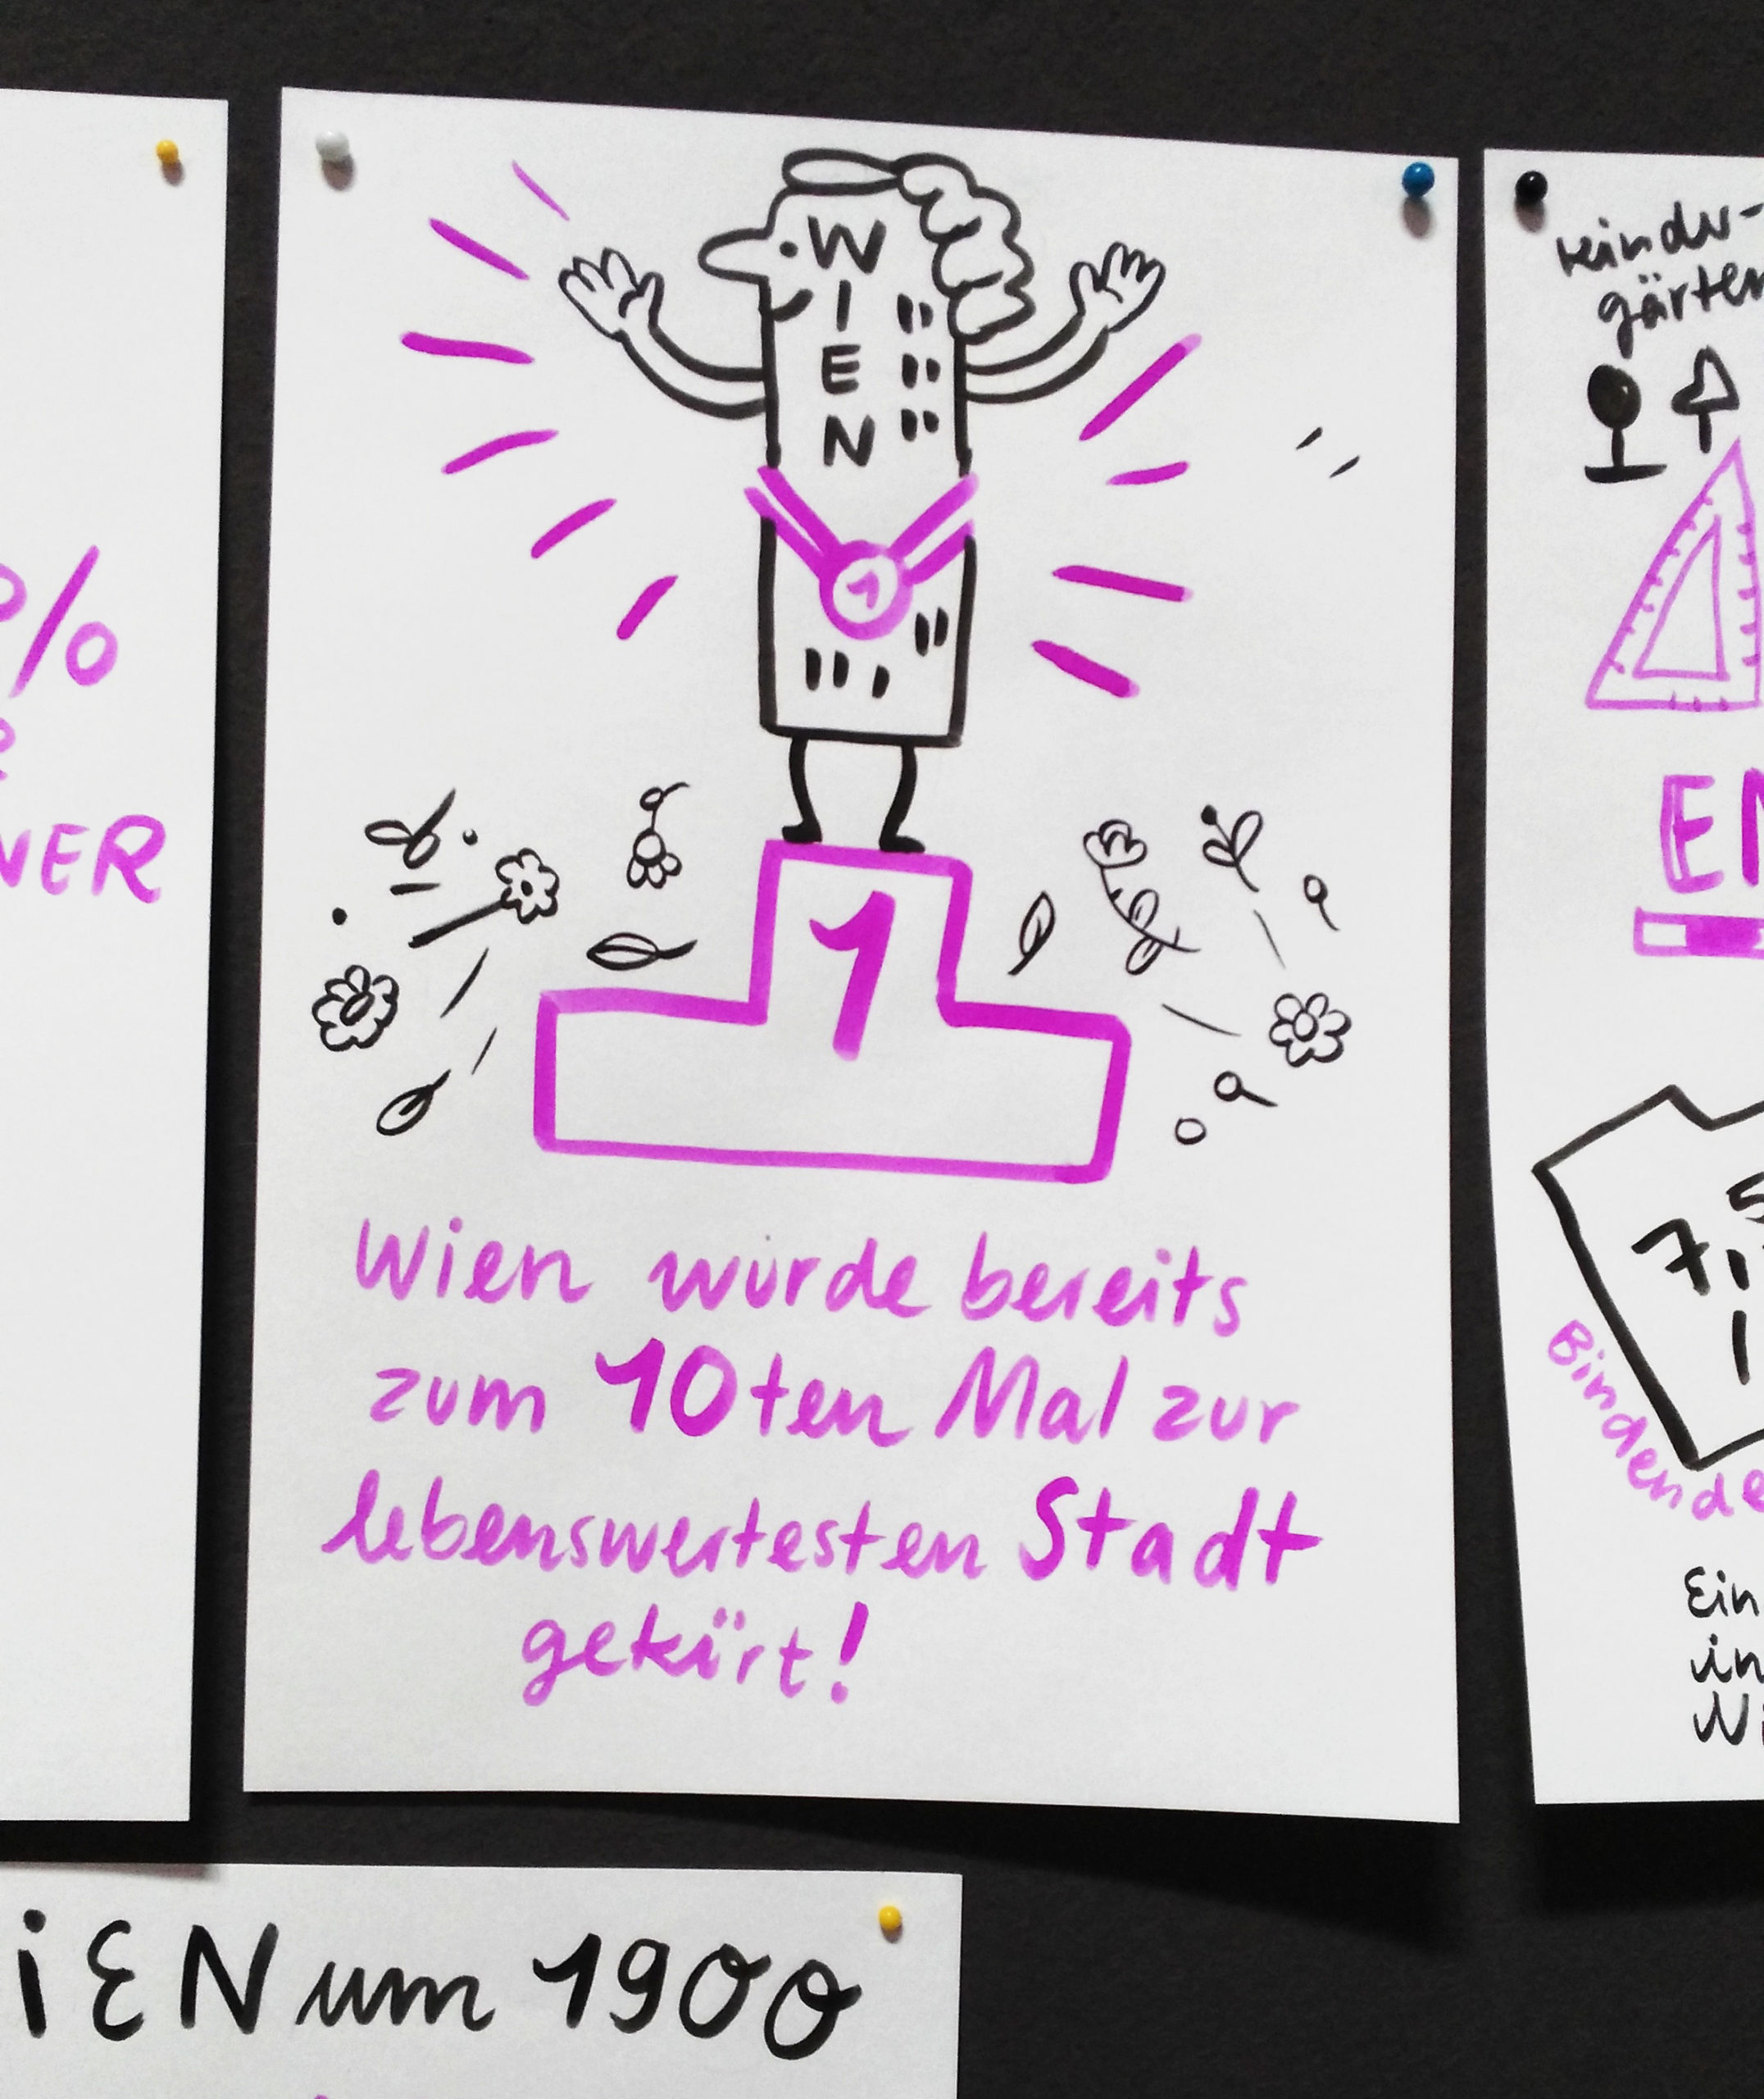 %
NER
W
I
E
N
1
1
Wien wurde bereits
zum 10ten Mal zur
lebenswertesten Stadt
gekürt!
kinder-
gärten
EN
7,
Bindende
Ein
in
iEN um 1900